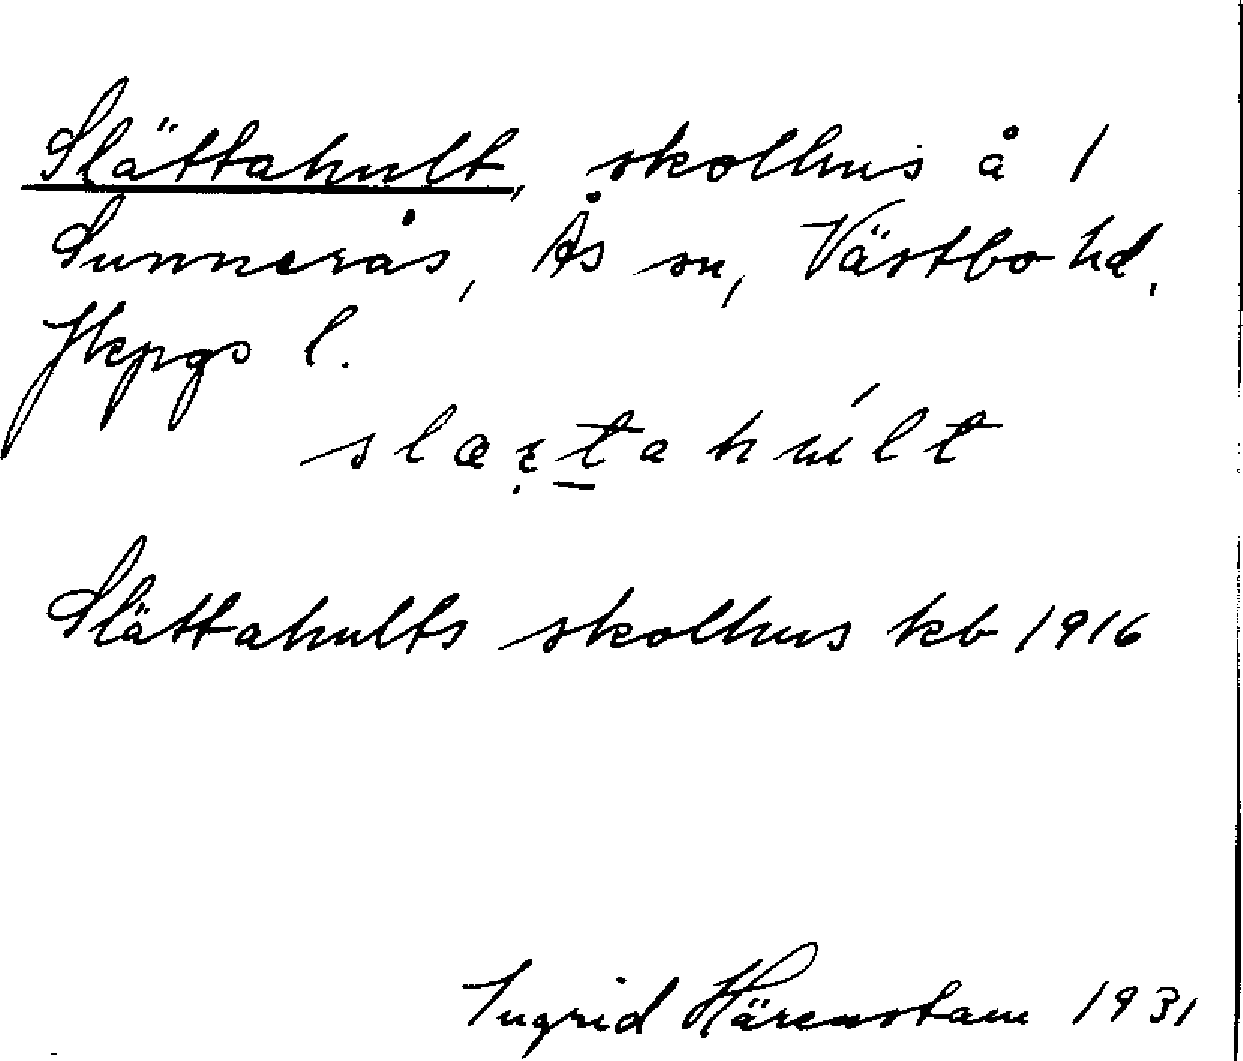 Slättahult, skolhus å 1
Sunnerås, Ås sn, Västbo hd.
Jkpgs l.
Slättahults skolhus kb 1916
Ingrid Härenstam 1931